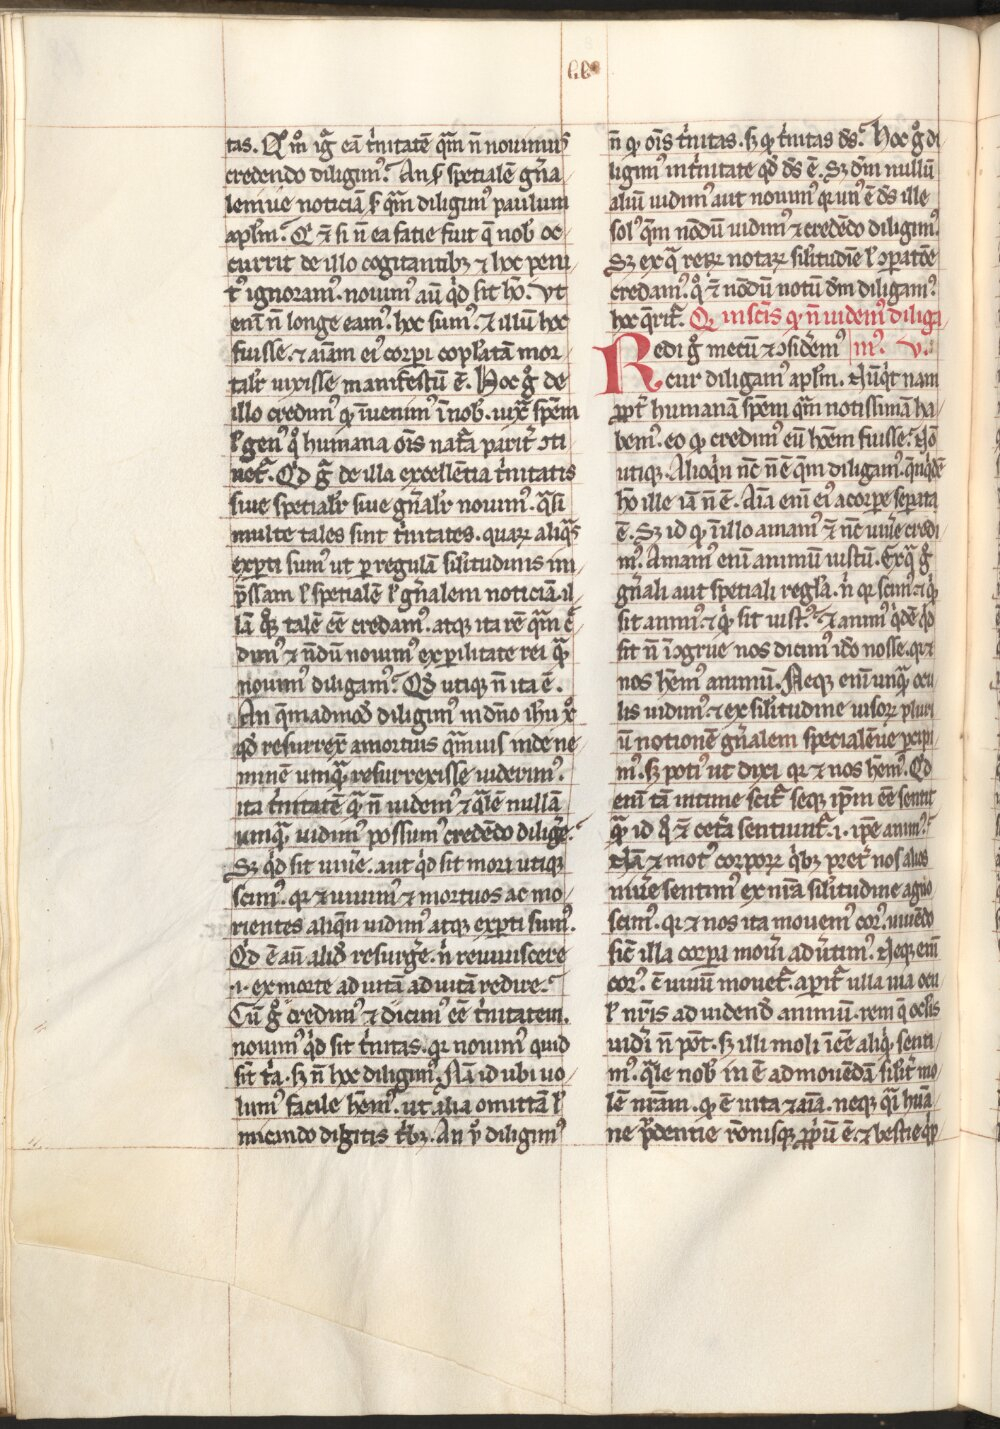 tas. Qm̊ igͣ eā t̉nitatē qͣm n̄ nouimus
credendo diligimꝰ. An ẜ spetialē gn̄a
lemue noticiā ẜ qͣm diligimꝰ paulum
apl̄m. Qͥ ⁊̄ si n̄ ea facie fuit q̄ nob̵ oc
currit de illo cogitantibꝫ ⁊ hoc peni
tꝰ ignoramꝰ. nouimꝰ aū qͥd sit hō. Vt
eni n̄ longe eamꝰ. hoc sumꝰ. ⁊ illū hoc
fuisse. ⁊ aīam eiꝰ corpi copl̓atā mor
talr̓ uixisse manifestū ē. Hoc gͦ de
illo credimꝰ qꝫ īuenimꝰ ī nob̵. iuxͣ spēm
l̓ genꝰ qͦ humana oīs nat̉a parit̉ ꝯti
net̉. Qd gͦ de illa excellētia t̉nitatis
siue spetialr̓ siue gn̄alr̓ nouimꝰ. qͣsi
multe tales sint t̉nitates. quaꝝ aliqͣs
experti sumꝰ ut ꝑ regulā silitudinis im
p̄ssam l̓ spetialē l̓ gn̄alem noticiā. il
lā qͦꝫ talē ēē credamꝰ. atqꝫ ita rē qͣm c̉
dimꝰ ⁊ n̄dū nouimꝰ ex ꝑilitate rei qͣ
nouimꝰ diligamꝰ. Qd̵ utiqꝫ n̄ ita ē.
An qͤmadmod̵ diligimꝰ in dn̄o ihu xͦ
qd̵ resurrex̄ a mortuis qͣmuis inde ne
minē umqͣ resurrexisse uiderimꝰ.
ita t̉nitatē qͣ n̄ uidemꝰ ⁊ qͣlē nullā
umqͣ uidimꝰ possumꝰ credēdo dilig̉e.
Sꝫ qͥd sit uiu̓e. aut qͥd sit mori utiqꝫ
scimꝰ. qꝛ ⁊ uiuimꝰ ⁊ mortuos ac mo
rientes aliqn̄ uidimꝰ atqꝫ experti sumꝰ.
Qͥd ē aū aliud̵ resurg̉e. n̉ reuiuiscere
.i. ex morte ad uitā ad uitā redire.
Cū gͦ credimꝰ ⁊ dicimꝰ ēē t̉nitatem.
nouimꝰ qͥd sit t̉nitas. qꝛ nouimꝰ quid
sīt t̉a. sꝫ n̄ hoc diligimꝰ. Nā id ubi uo
lumꝰ facile hēmꝰ. ut alia omittā l̓
micando digitis t̉bꝫ. An ṽ diligimꝰ
n̄ qꝫ oīs t̉nitas. sꝫ qꝫ t̉nitas dꝰs. Hoc gͦ di
ligimꝰ in t̉nitate qd̵ dꝰs ē. Sꝫ dm̄ nullū
aliū uidimꝰ aut nouimꝰ qꝛ unꝰ ē dꝰs ille
solꝰ qͤm nōdū uidimꝰ ⁊ credēdo diligimꝰ.
Sꝫ ex qͣ reꝝ notaꝝ silitudīe l̓ ꝯparatōe
credamꝰ. qͦ ⁊̄ nōdū notū dm̄ diligamꝰ.
hoc q̄rit̉. Qͥ in sc̄is qꝫ n̄ uidemꝰ diliga
Redi gͦ mecū ⁊ ꝯsid̉emꝰ mꝰ. v.
cur diligamꝰ apl̄m. Nūqͥt nam
ꝓpt̉ humanā spēm qͣm notissimā ha
bemꝰ. eo qꝫ credimꝰ eū hōem fuisse. Nō
utiqꝫ. Alioqͥn nc̄ n̄ ē qͤm diligamꝰ. qn̄qͥdē
hō ille iā n̄ ē. Aīa eni eiꝰ a corpe separata
ē. Sꝫ id qꝫ ī illo amamꝰ ⁊̄ nc̄ uiu̓e credi
mꝰ. Amamꝰ eni animū iustū. Ex qͣ gͦ
gn̄ali aut spetiali regl̓a. n̉ qꝛ scimꝰ ⁊ qͥ
sit animꝰ. ⁊ qͥ sit iustꝰ. ⁊ animꝰ qͥdē qͥd
sit n̄ īcgrue nos dicimꝰ iō nosse. qꝛ ⁊
nos hēmꝰ animū. Neqꝫ eni umqͣ ocu
lis uidimꝰ. ⁊ ex silitudine uisoꝝ pluri
ū notionē gn̄alem specialēue ꝑcipi
mꝰ. sꝫ potiꝰ ut dixi qꝛ ⁊ nos hēmꝰ. Qd
eni tā intime scit̉ seqꝫ ip̄m ēē sentit
qͣ id qͦ ⁊̄ cet̉a sentiunt̉ .i. ip̄e animꝰ.
Nā ⁊ motꝰ corpoꝝ qͥbꝫ pret̉ nos alios
uiu̓e sentimꝰ ex nr̄a silitudine agno
scimꝰ. qꝛ ⁊ nos ita mouemꝰ corꝰ. uiuēdo
sic̄ illa corpa mou̓i adu̓timꝰ. Neqꝫ eni
corꝰ. c̄ uiuū mouet̉. aperit̉ ulla uia ocu
l̓ nr̄is ad uidend̵ animū. rem q̄ oclis
uid̉i n̄ pōt. sꝫ illi moli īēē aliqͥ senti
mꝰ. qͣle nob̵ in ē ad mouēdā silit̉ mo
lē nr̄am. qꝫ ē uita ⁊ aīa. neqꝫ qͣi huā
ne p̄dentie rōnisqꝫ ꝓpriū ē. ⁊ bestie qͥp